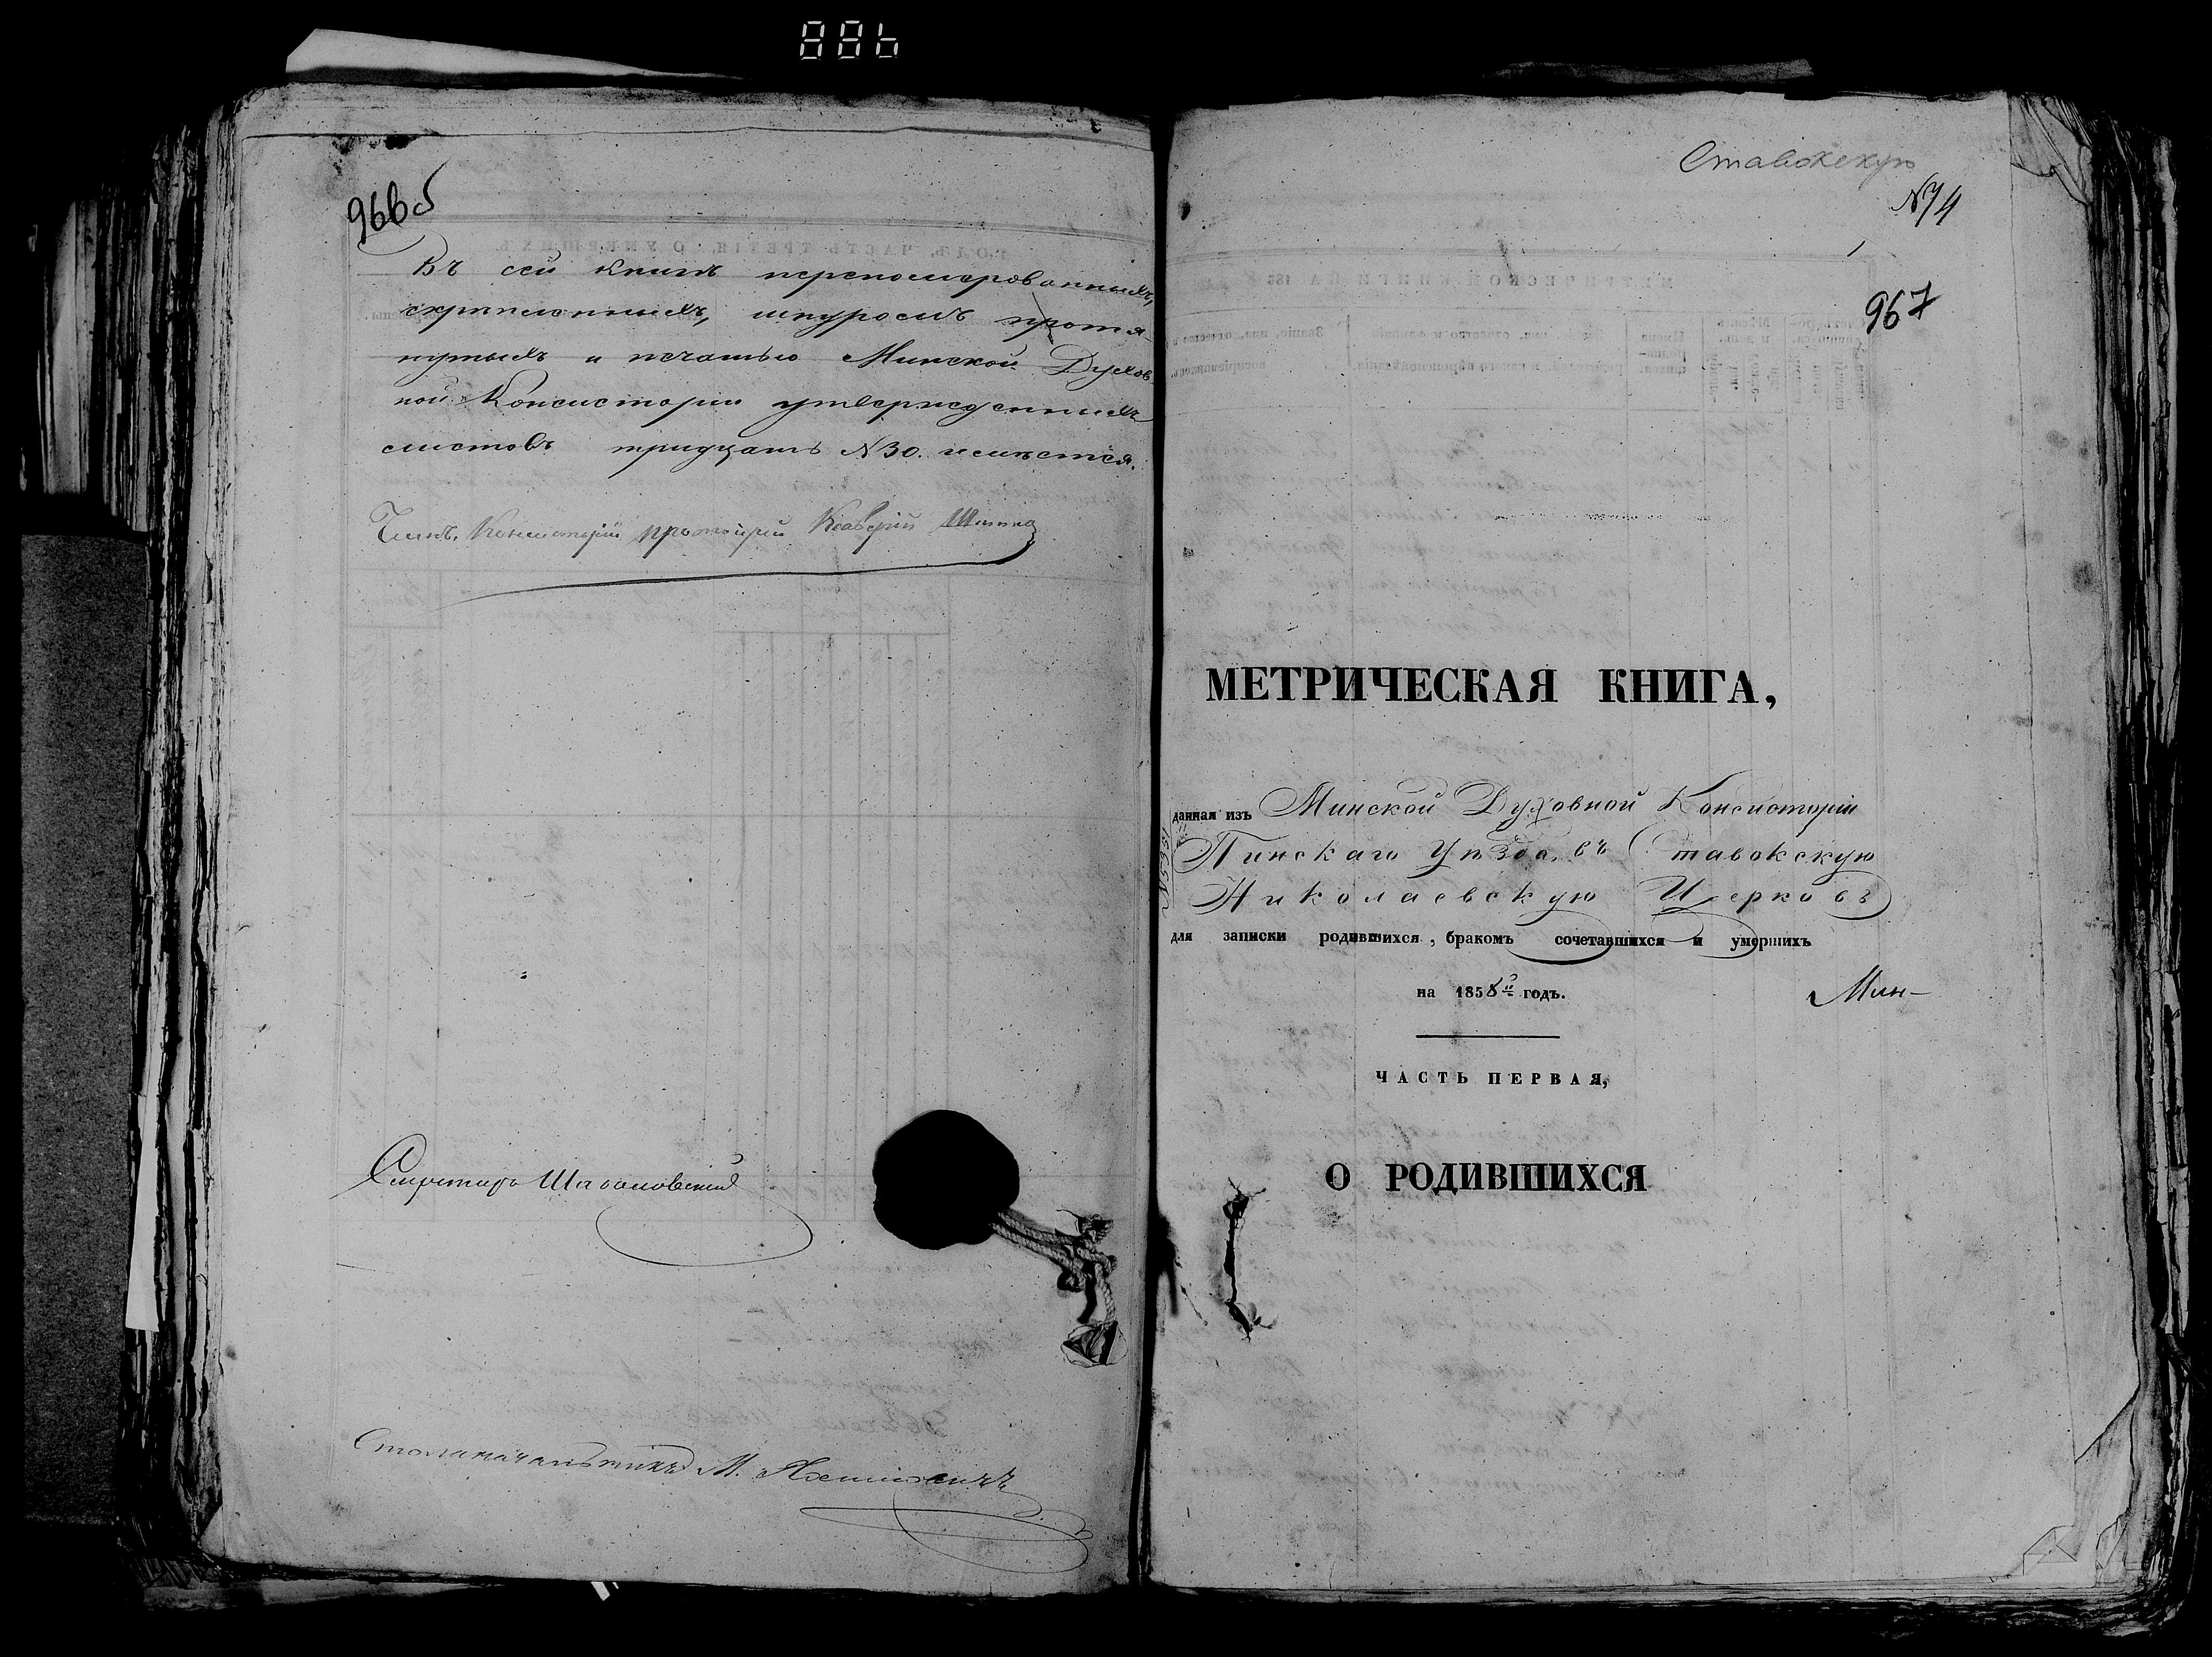 966об
Въ сей книгѣ перепомерованныхъ,
скрѣпленныхъ, шнуромъ протя-
нутыхъ и печатью Минской Духов-
ной Консисторіи утвержденныхъ
листовъ тридцать N 30. имѣется.
Членъ Консисторіи протоіерей
Секретарь
Столоначальникъ М.
Ставокскую
N 74
1
967
МЕТРИЧЕСКАЯ КНИГА,
данная изъ Минской Духовной Консисторіи
Пинскаго Уѣзда, въ Ставокскую
Николаевскую Церковь
для записки родившихся, бракомъ сочетавшихся и умершихъ
на 1858й годъ.
Мин-
ЧАСТЬ ПЕРВАЯ,
О РОДИВШИХСЯ